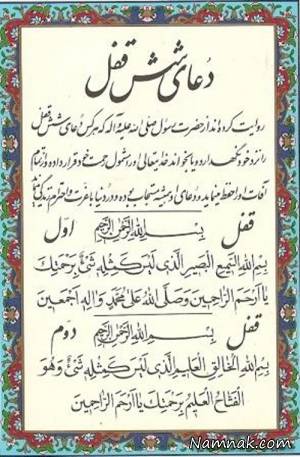 دعای شش قفل
روایت کرده‌اند از حضرت رسول صلی الله علیه و آله که هر کس دعای شش قفل
را نزد خود نگهدارد و یا بخواند خدای تعالی او را مشمول رحمت خود قرار داده و از تمام
آفات او را حفظ می‌نماید و دعای او همیشه مستجاب بوده و در دنیا با عزت و احترام زندگی کند
قفل بسم الله الرحمن الرحیم اول
بِسْمِ اللهِ السَّمیعِ الْبَصیرِ الَّذی لَیْسَ کَمِثْلِهِ شَیْئٌ بِرَحْمَتِكَ
یا اَرْحَمَ الرّاحِمینَ وَصَلَّی اللهُ عَلی مُحَمَّدٍ وَالِهِ اَجْمَعینَ
قفل بسم الله الرحمن الرحیم دوم
بِسْمِ اللهِ الْخالِقِ الْعَلیمِ الَّذی لَیْسَ کَمِثْلِهِ شَیْئٌ وَهُوَ
الْفَتّاحُ الْعَلیمُ بِرَحْمَتِكَ یا اَرْحَمَ الرّاحِمینَ
Namnak.com